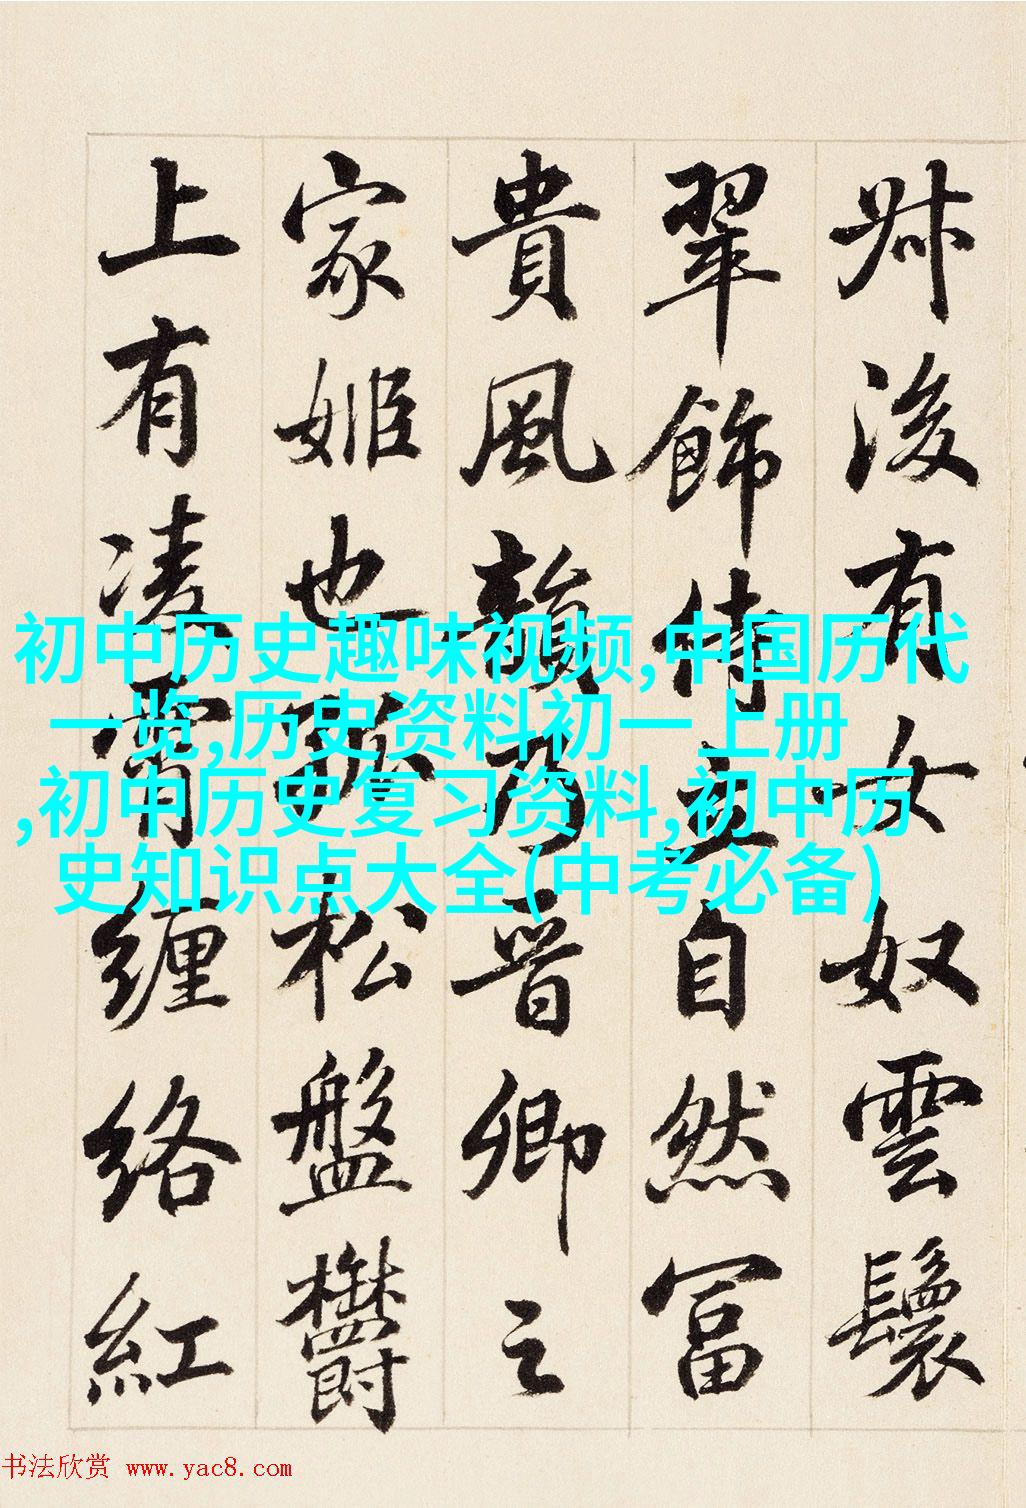 叔後有女奴雲鬟
翠飾侍立自然冨
貴風韻乃晋卿之
家姬也孤松盤鬱
上有凌霄纏絡紅
初中历史趣味视频,中国历代
一览,历史资料初一上册
,初中历史复习资料,初中历
史知识点大全(中考必备)
书法欣赏 www.yac8.com